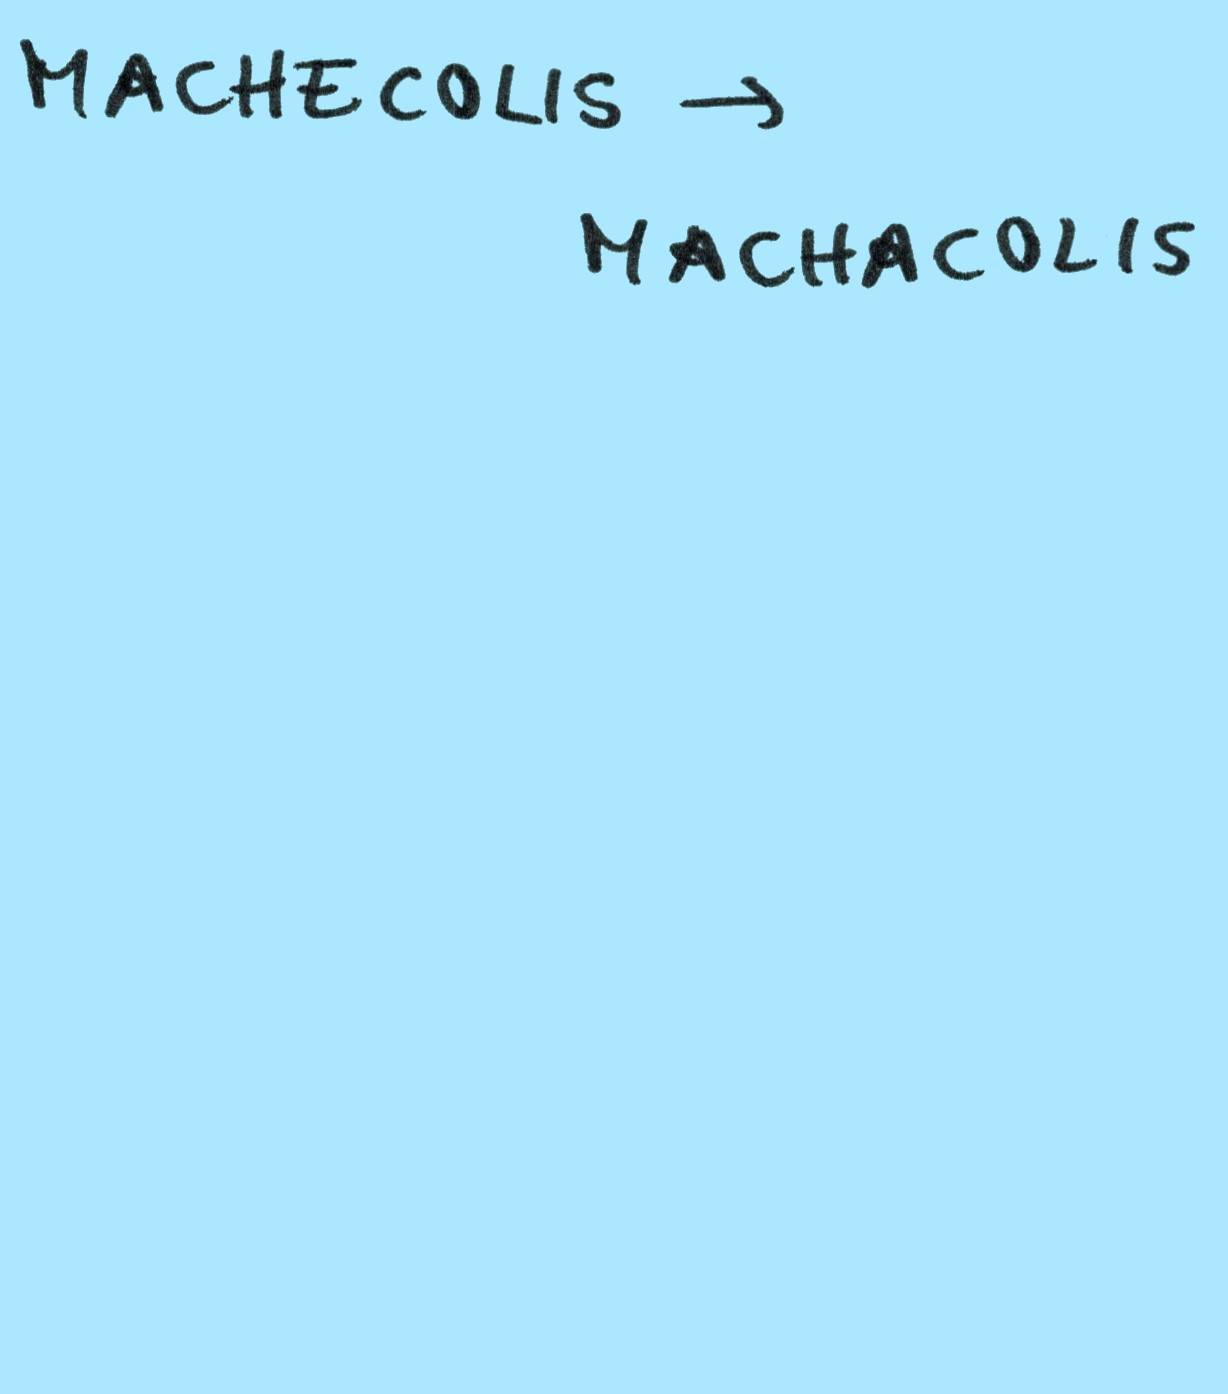 MACHECOLIS →
MACHACOLIS